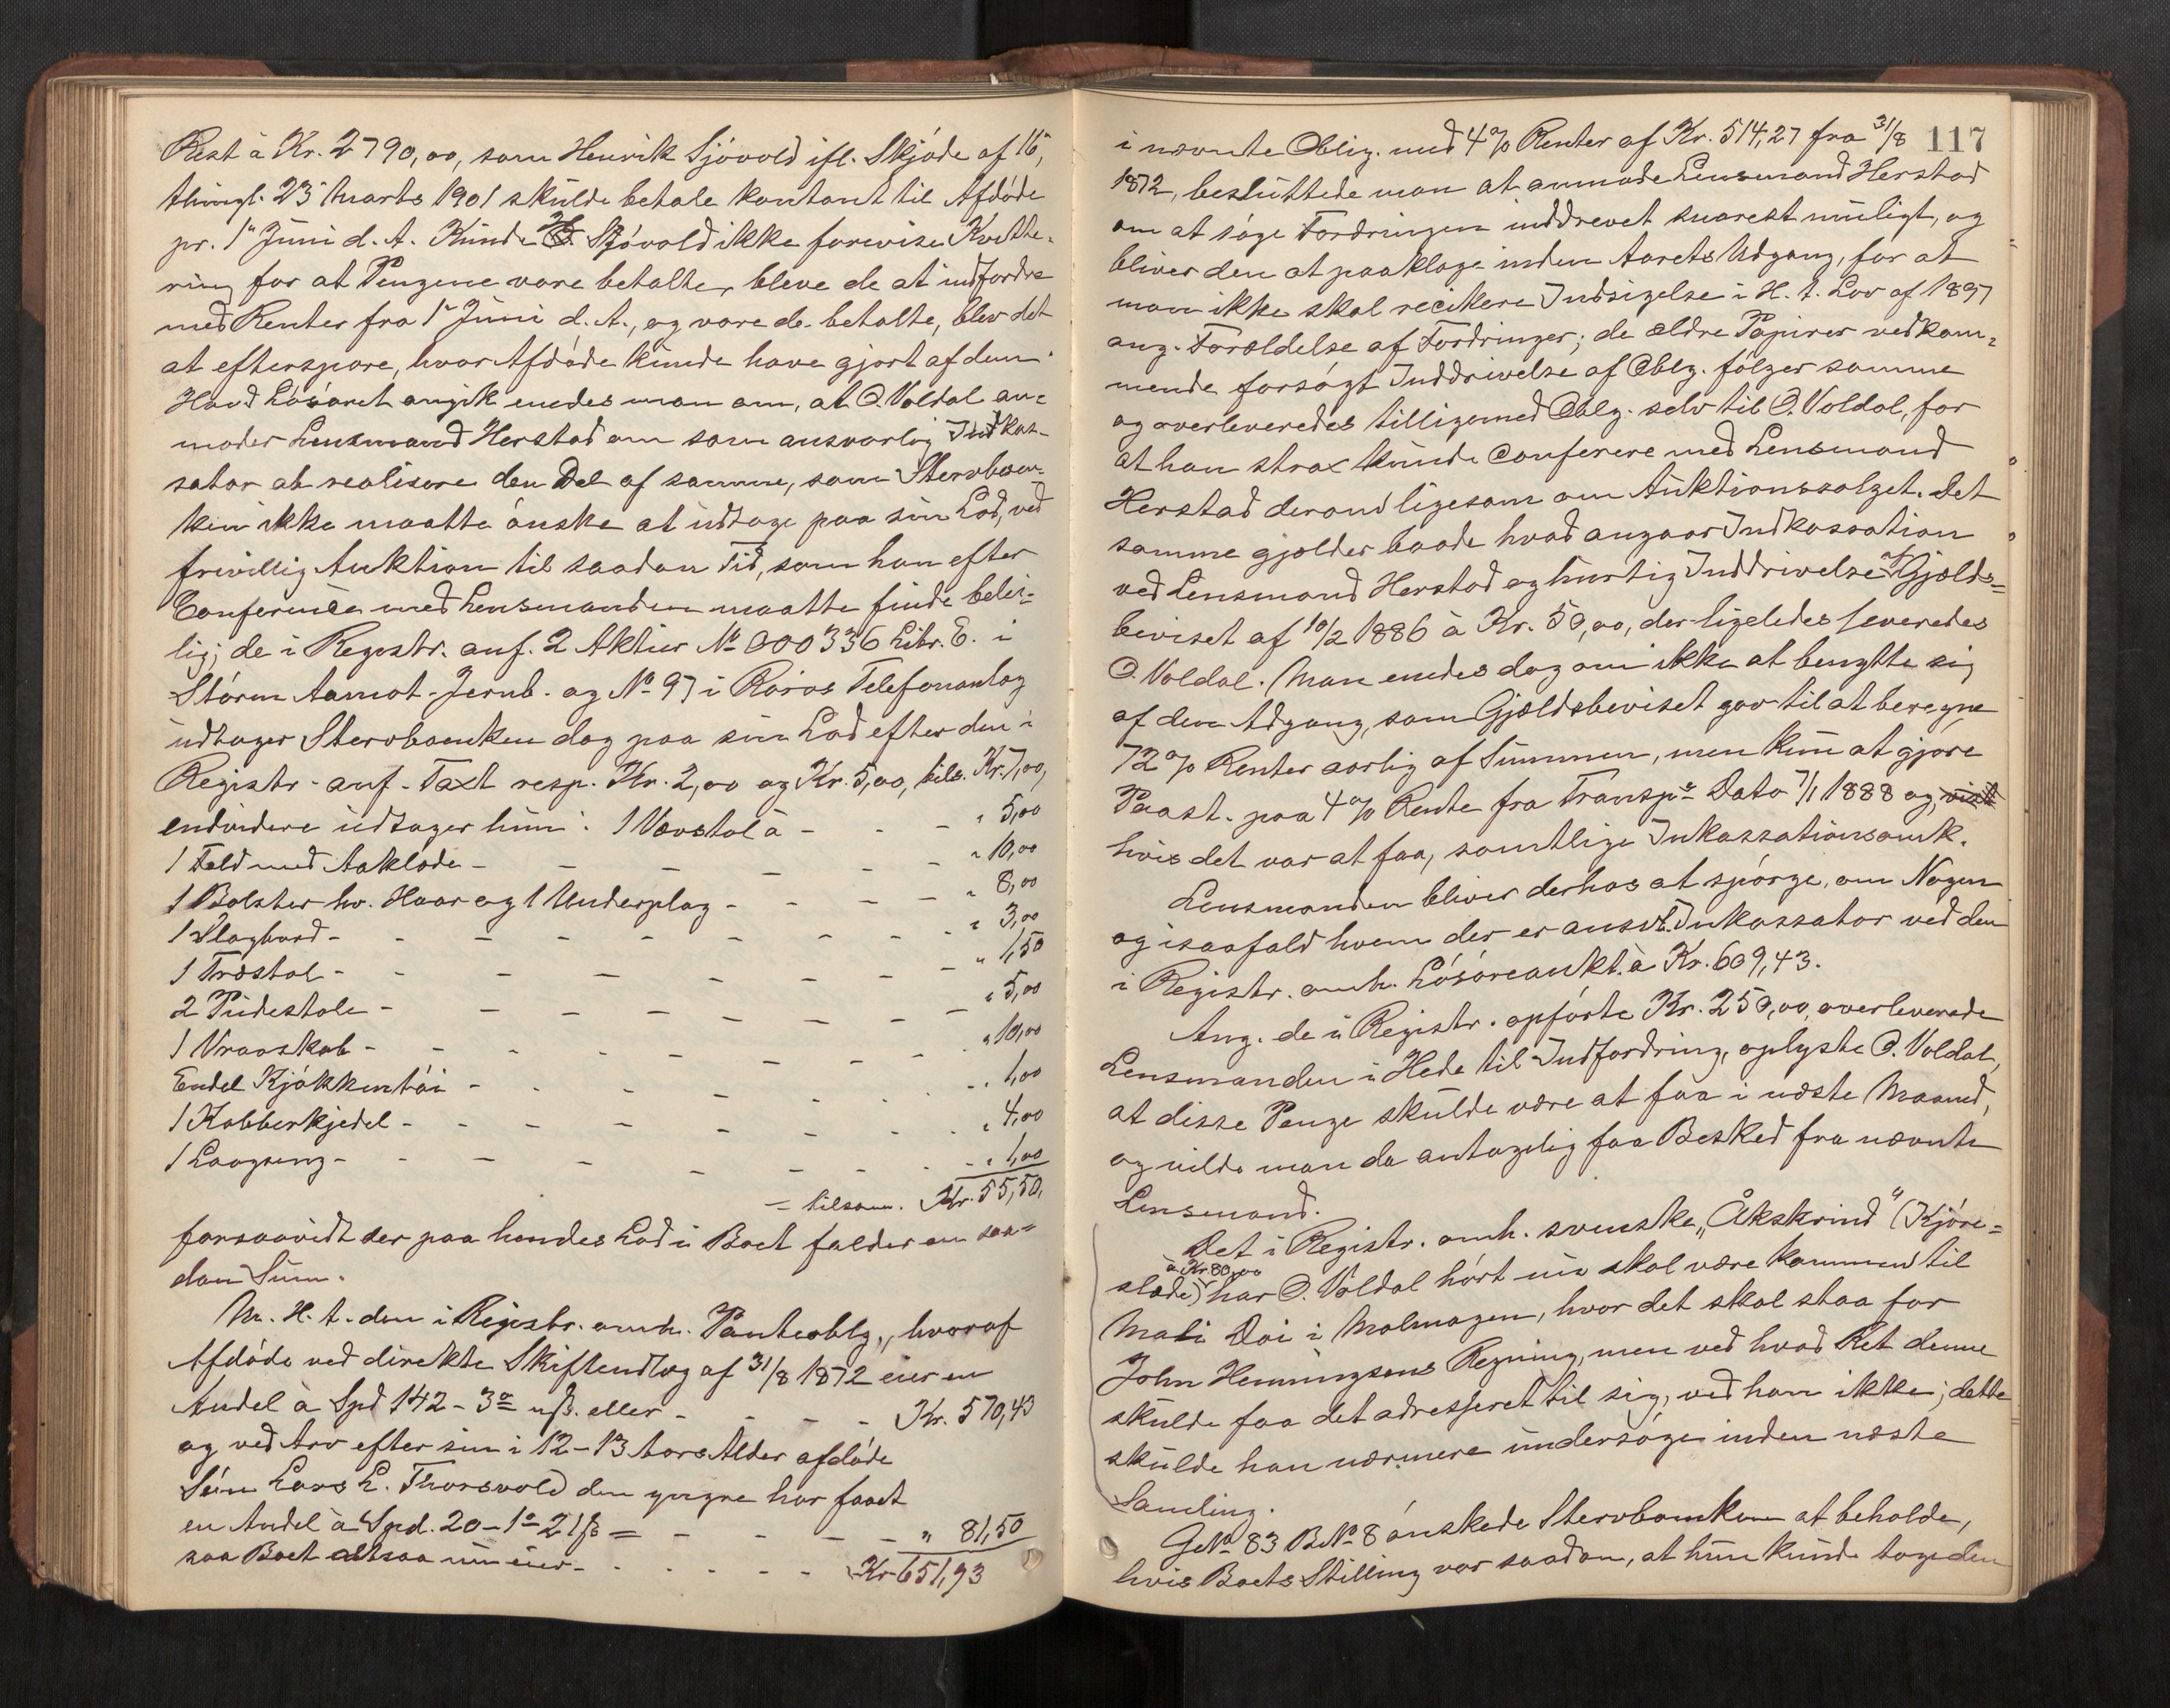 Rest à Kr. 2790,00, som Henrik Sjövold ifl. Skjöde af 16,
thingl. 23 Marts 1901 skulde betale kontant til Afdöde
pr. 1 Juni d. A. Kunde H. Sjövold ikke forevise Kvitte-
ring for at Pengene vare betalte, bleve de at indfordre
med Renter fra 1 Juni d. A., og vare de betalte, blev det
at efterspore, hvor Afdöde kunde have gjort af dem.
Hvad Lösöret angik enedes man om, at O. Voldal an-
moder Lensmand Herstad om som ansvarlig Indkas-
sator at realisere den Del af samme, som Stervboen-
ken ikke maatte önske at udtage paa sin Lod, ved
frivillig Auktion til saadan Tid, som han efter
Conference med Lensmanden maatte finde belei-
lig; de i Registr. anf. 2 Aktier No 000336 Litr. E. i
Stören Aamot-Jernb. og No 97 i Röros Telefonanlæg
udtager Stervboenken dog paa sin Lod efter den i
Registr. anf. Taxt resp. Kr. 2,00 og Kr. 5,00, tils. Kr. 7,00,
endvidere udtager hun: 1 Vævstol à - - - " 5,00
1 Feld med Aaklæde - - - - - " 10,00
1 Bolster hv. Haar og 1 Underplag - - - - " 8,00
1 Slagbord - - - - - - - - " 3,00
1 Træstol - - - - - - - - " 1,50
2 Pidestole - - - - - - - - " 5,00
1 Vraaskab - - - - - - - - " 10,00
Endel Kjökkentöi - - - - - - - " 1,00
1 Kobberkjedel - - - - - - - " 4,00
1 Laagseng - - - - - - - - " 1,00
= tilsam. Kr. 55,50,
forsaavidt der paa hendes Lod i Boet falder en saa-
dan Sum.
M. H. t. den i Registr. omh. Panteoblg., hvoraf
Afdöde ved direkte Skifteudlæg af 31/8 1872 eier en
Andel à Spd 142 - 3 - uß. eller - - - - Kr. 570,43
og ved Arv efter sin i 12-13 Aars Alder afdöde
Sön Lars L. Thorsvold den yngre har faaet
en Andel à Spd. 20 - 1 - 21 ß = - - - - " 81,50
saa Boet altsaa nu eier - - - - - - Kr. 651,93
117
i nævnte Oblig. med 4% Renter af Kr. 514,27 fra 31/8
1872, besluttede man at anmode Lensmand Herstad
om at söge Fordringen inddrevet snarest muligt, og
bliver den at paaklage inden Aarets Udgang, for at
man ikke skal recikere Indsigelse i H. t. Lov af 1897
ang. Forældelse af Fordringer; de ældre Papirer vedkom-
mende forsögt Inddrivelse af Oblg. fölger samme
og overleveredes tilligemed Oblg. selv til O. Voldal, for
at han strax kunde Conferere med Lensmand
Herstad derom ligesom om Auktionssalget. Det
samme gjælder baade hvad angaar Indkassation
ved Lensmand Herstad og hurtig Inddrivelse af Gjælds-
beviset af 10/2 1886 à Kr. 50,00, der ligeledes leveredes
O. Voldal. Man enedes dog om ikke at benytte sig
af den Adgang, som Gjældsbeviset gav til at beregne
72% Renter aarlig af Summen, men kun at gjöre
Paast. paa 4% Rente fra Transp. Dato 7/1 1888 og
hvis det var at faa, samtlige Inkassationsomk.
Lensmanden bliver derhos at spörge, om Nogen
og isaafald hvem der er ansvl. Inkassator ved den
i Registr. omh. Lösöreaukt. à Kr. 609,43.
Ang. de i Registr. opförte Kr. 250,00, overleverede
Lensmanden i Hede til Indfordring, oplyste O. Voldal,
at disse Penge skulde være at faa i næste Maaned,
og vilde man da antagelig faa Besked fra nævnte
Lensmand.
Det i Registr. omh. svenske „Åkskrind" (Kjöre-
à Kr 80,00
slæde) har O. Voldal hört nu skal være kommen til
Mali Doi i Malmagen, hvor det skal staa for
John Henningsens Regning, men ved hvad Ret denne
skulde faa det adresseret til sig, ved han ikke; dette
skulde han nærmere undersöge inden næste
Samling.
GNo 83 BNo 8 önskede Stervboenken at beholde,
hvis Boets Stilling var saadan, at hun kunde tage den